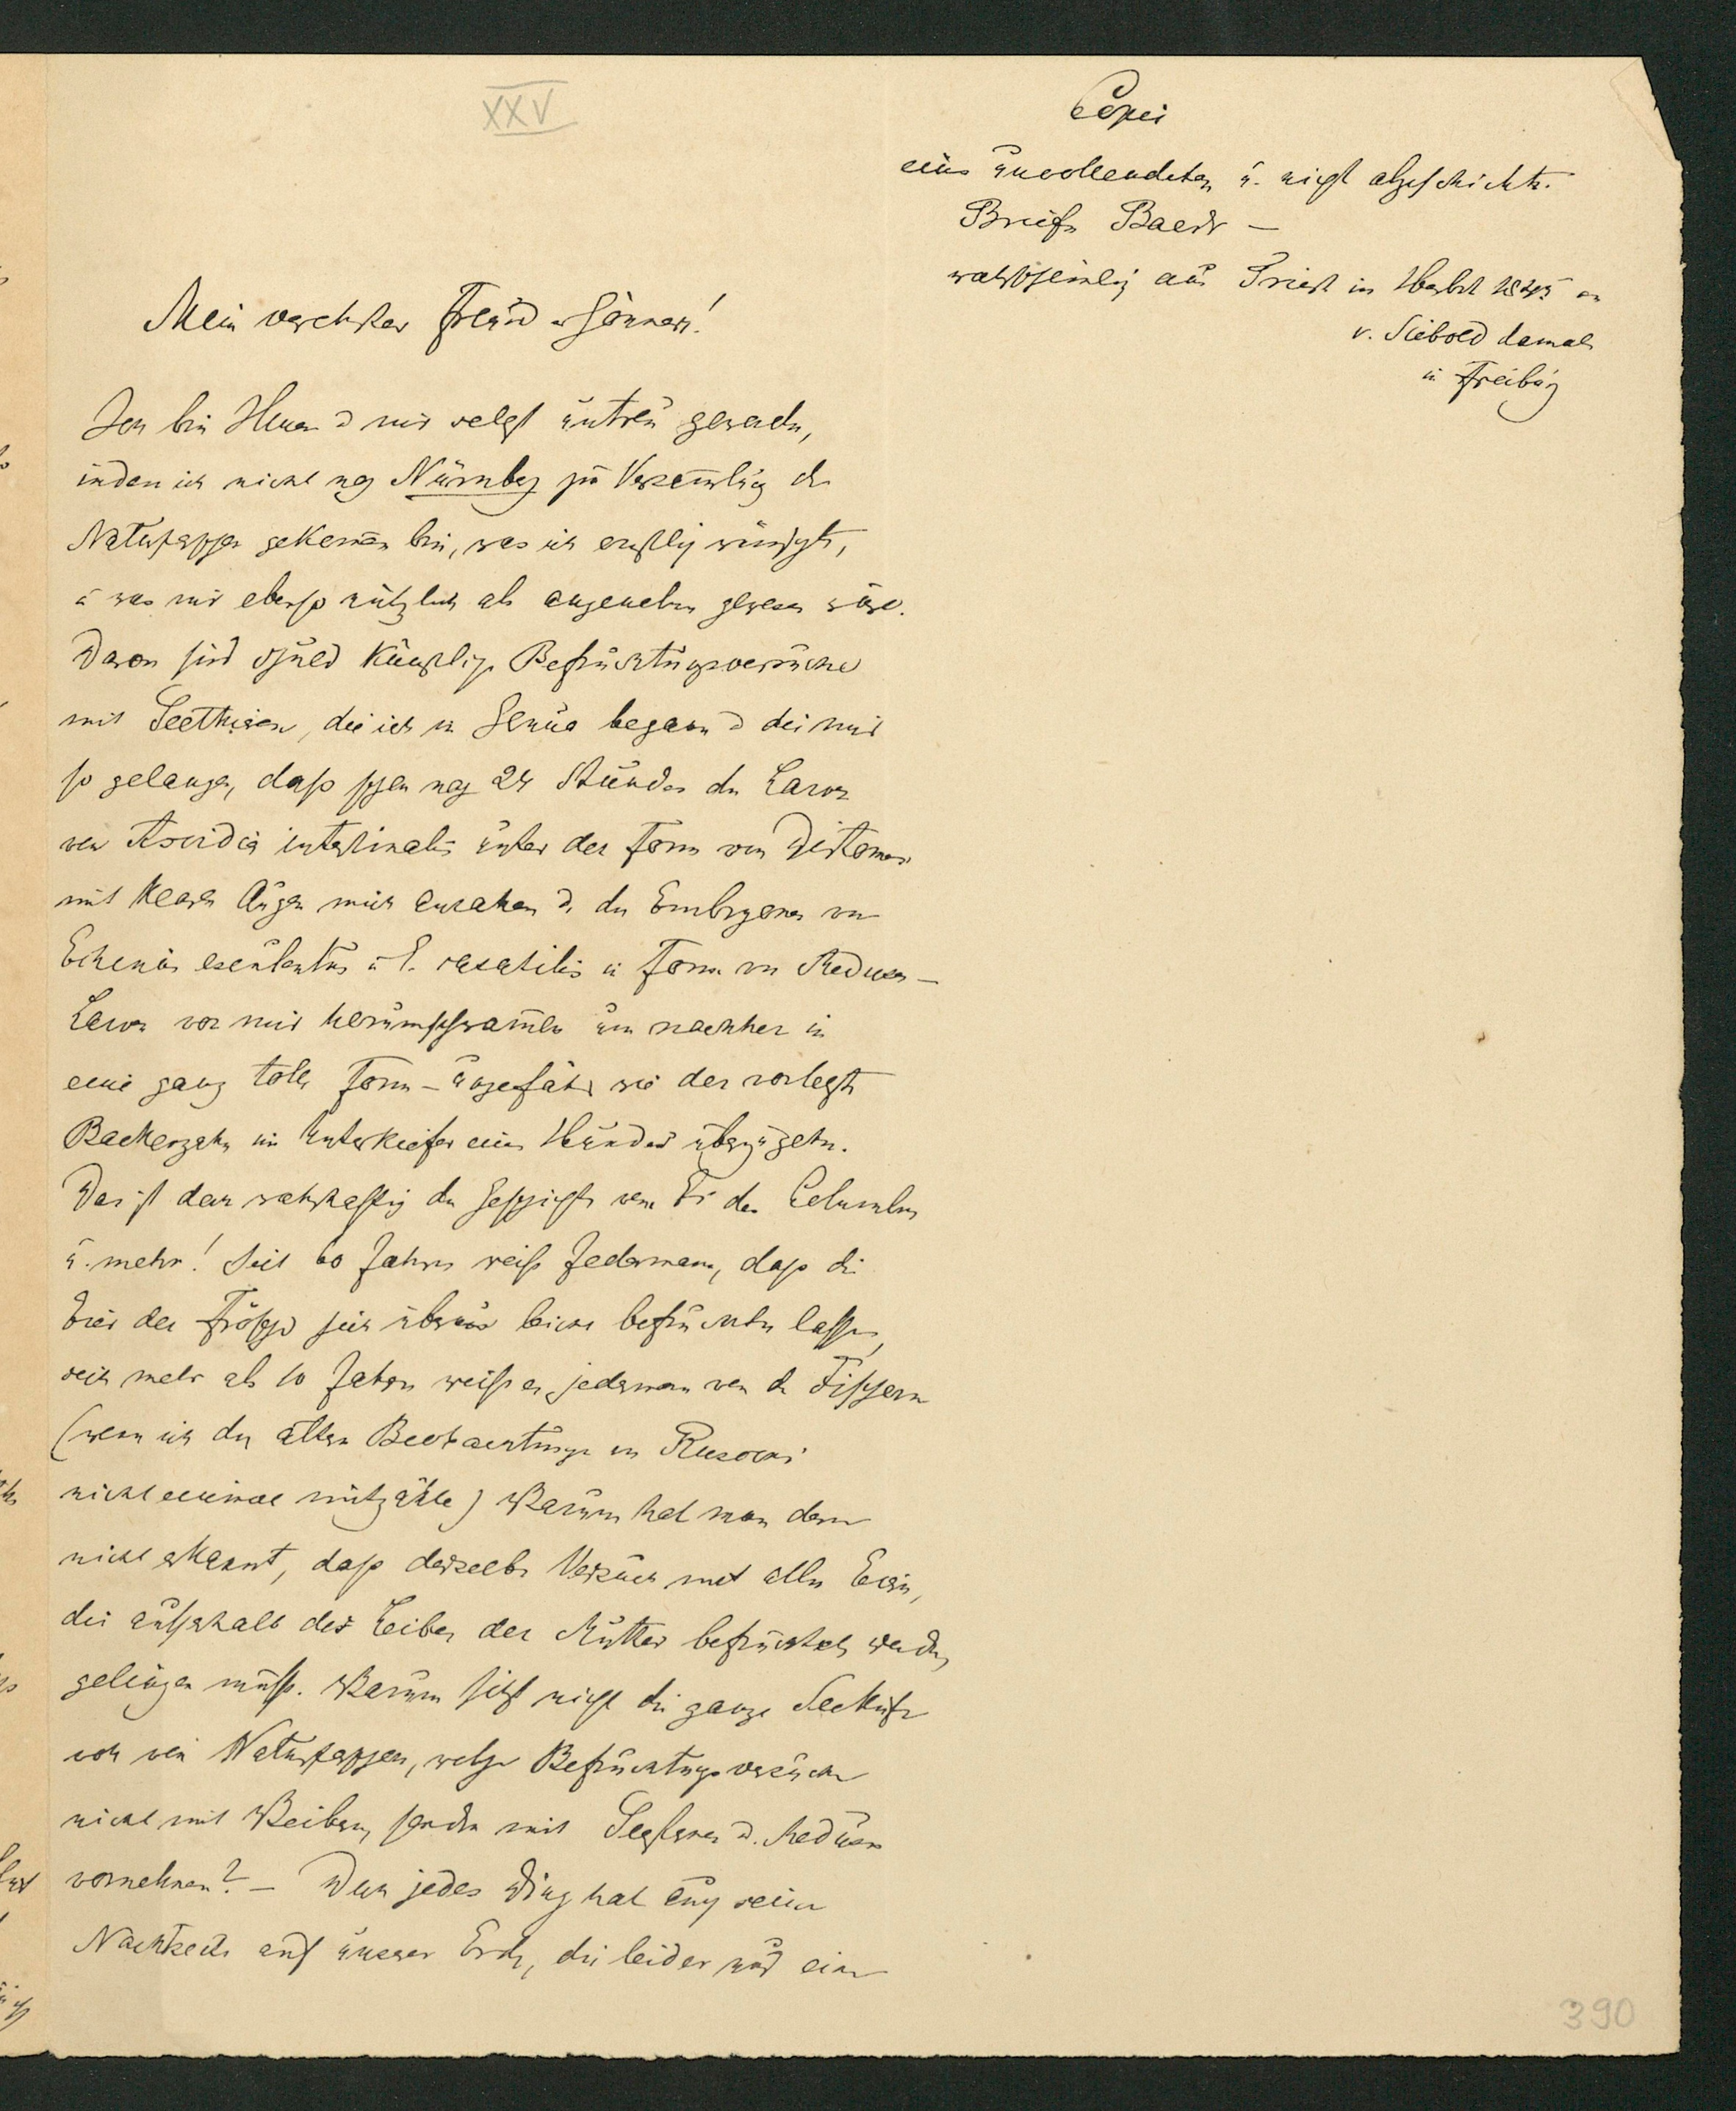 XXV
Copei
eines unvollendeten u. nicht abgeschickten
Briefes Baers —
wahrscheinlich aus Triest im Herbst 1845 an
v. Siebold damals
in Freiburg
Mein verehrter Freund u. Gönner!
Ich bin Ihnen u mir selbst untreu geworden,
indem ich nicht nach Nürnberg zur Versamlung der
Naturforscher gekomen bin, was ich ernstlich wünschte,
u was mir ebenso nützlich als angenehm gewesen wäre.
Davon sind schuld künstliche Befruchtungsversuche
mit Seethieren, die ich in Genua begann u die mir
so gelangen, dass schon nach 24 Stunden die Larven
von Ascidia intestinalis unter der Form von Distomen
mit klaren Augen mich ansahen u. die Embryonen von
Echinus esculentus u E. saxatilis in Form von Medusen-
Larven vor mir herumschwamen um nachher in
eine ganz tolle Form – ungefähr wie der vorletzte
Backenzahn im Unterkiefer eines Hundes überzugehn.
Das ist denn wahrhaftig die Geschichte vom Ei des Columbus
u. mehr! Seit 60 Jahren weiss Jedermann, dass die
Eier der Frösche sich überaus leicht befruchten lassen,
seit mehr als 10 Jahren weiss es jederman von den Fischern
(wenn ich die alten Beobachtungen von Rusconi
nicht einmal mitzähle) Warum hat man denn
nicht erkannt, dass derselbe Versuch mit allen Eiern,
die ausserhalb des Leibes der Mutter befruchtet werden,
gelingen muss. Warum sitzt nicht die ganze Seeküste
voll von Naturforschern, welche Befruchtungsversuche
nicht mit Weibern, sondern mit Seesternen u. Medusen
vornehmen? – Denn jedes Ding hat auch seine
Nachtseite auf unserer Erde, die leider nur eine
390